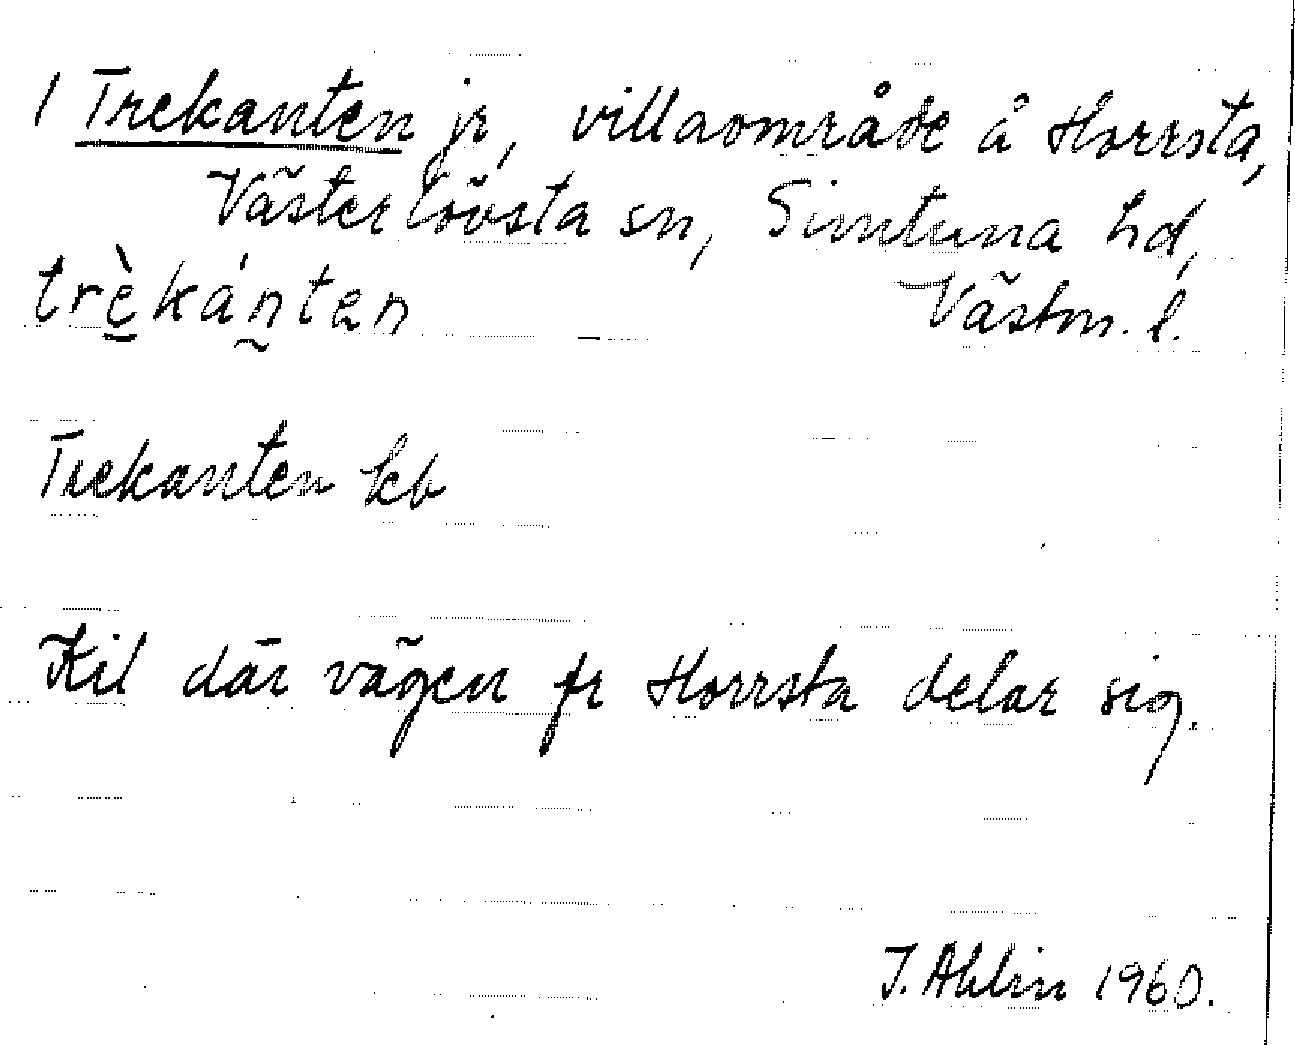 1 Trekanten jr, villaområde å Horrsta,
Västerlövsta sn, Simtuna hd,
trè̲kán̰ten Västm. l.
Trekanten kb
Kil där vägen fr Horrsta delar sig.
J. Ahlin 1960.